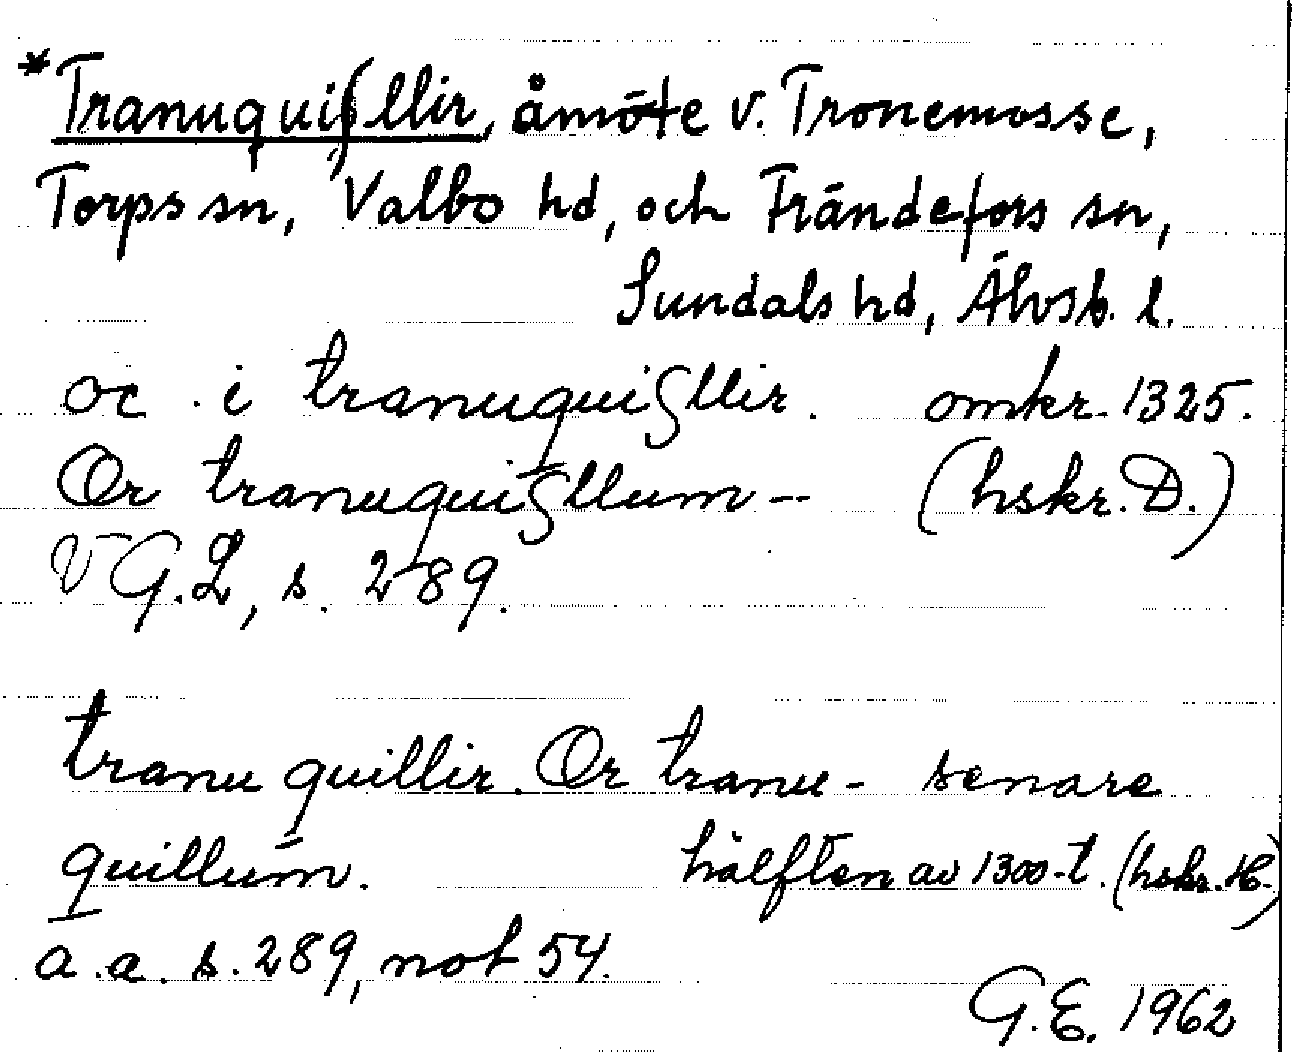 *Tranuquiſllir, åmöte v. Tronemosse,
Torps sn, Valbo hd, och Frändefors sn,
Sundals hd, Älvsb. l.
oc i tranuquiſllir. omkr. 1325.
Or tranuquiſllum -- (hskr. D.)
VGL, s. 289.
tranu quillir. Or tranu- senare
quillum. hälften av 1300-t. (hskr. H.)
a.a. s. 289, not 54.
G.E. 1962